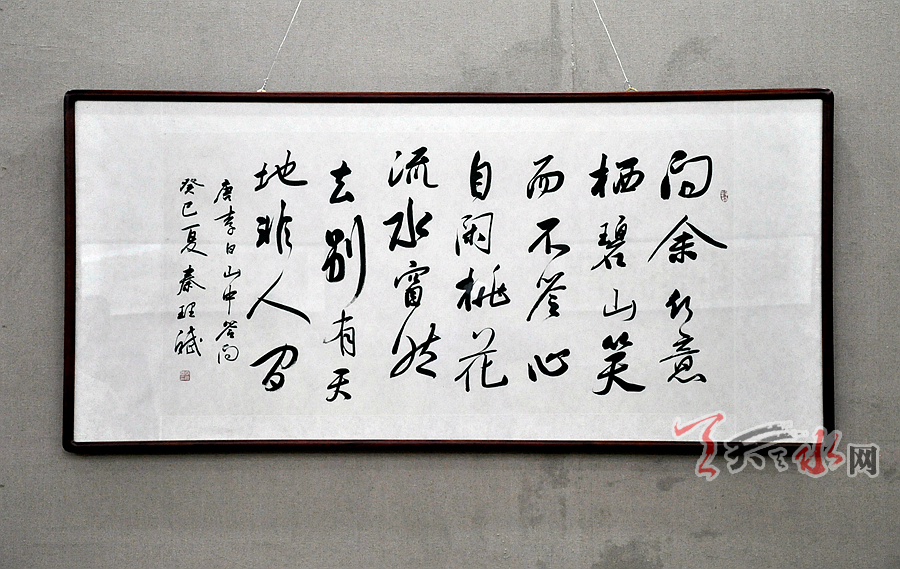 问余何意
栖碧山笑
而不答心
自闲桃花
流水窅然
去别有天
地非人间
唐李白山中答问
癸巳夏 秦理斌
天天天水网